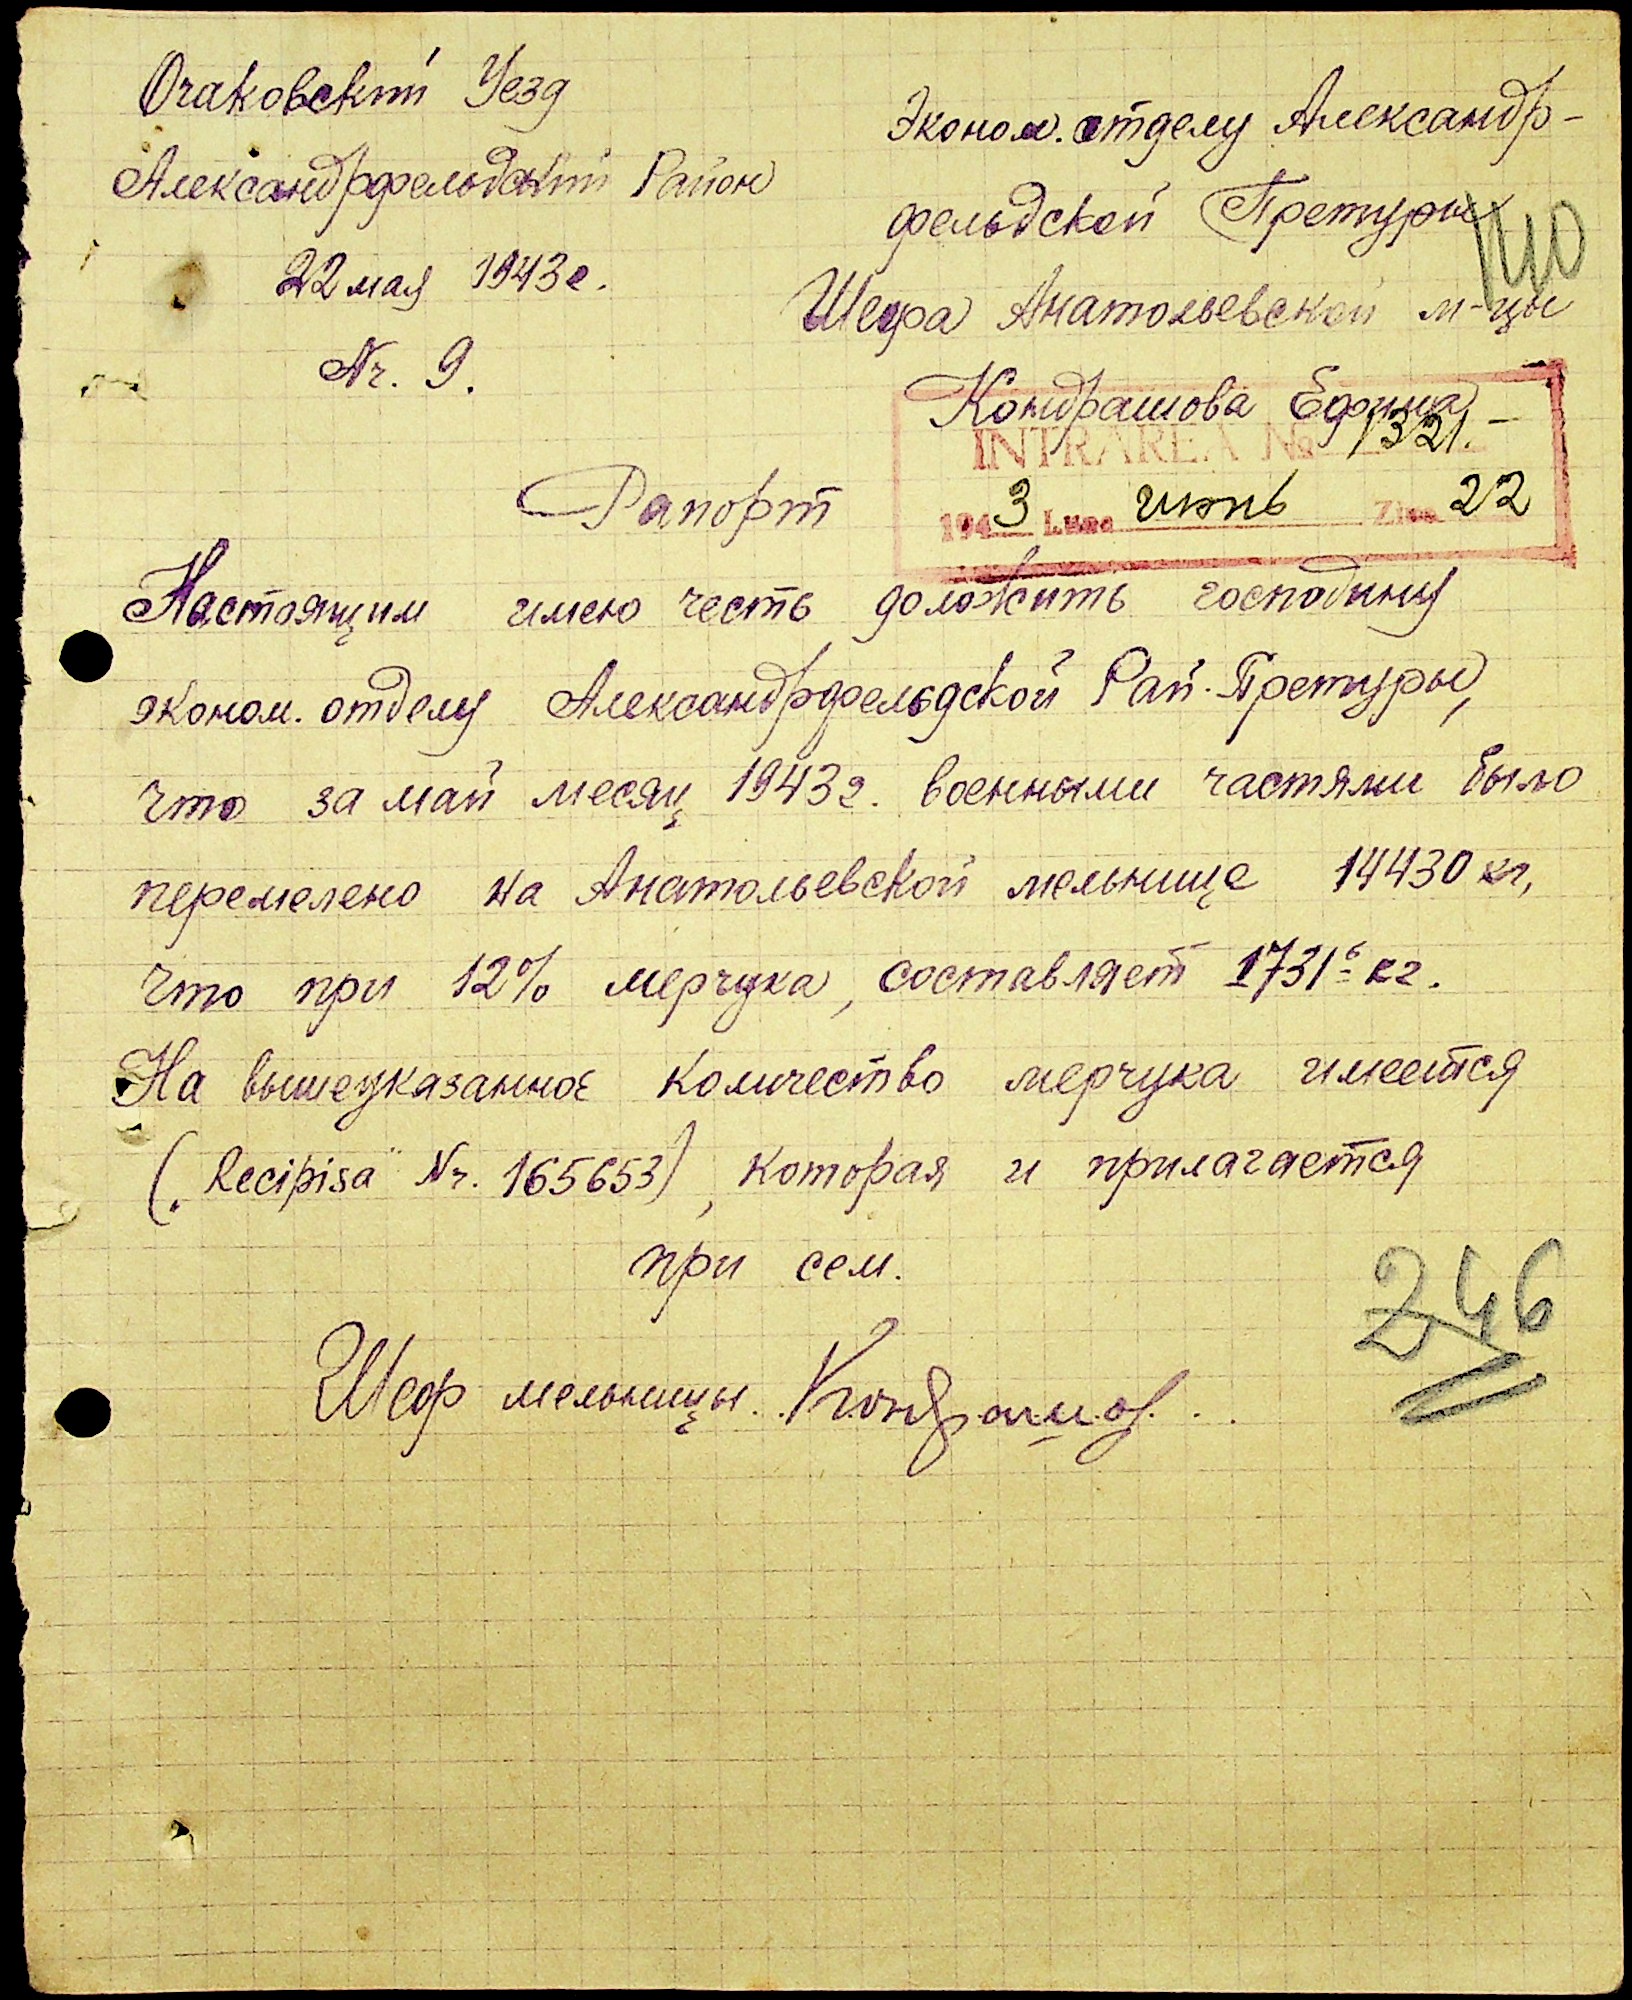 Очаковский Уезд
Александрфельдский Район
22 мая 1943 г.
Nr. 9.
Эконом. отделу Александр-
фельдской Претуры
Шефа Анатольевской м-цы
Кондрашова Ефима
INTRAREA № 1321.-
1943 Luna июнь Ziua 22
Рапорт
Настоящим имею честь доложить господину
эконом. отделу Александрфельдской Рай. Претуры,
что за май месяц 1943 г. военными частями было
перемелено на Анатольевской мельнице 14430 кг,
что при 12% мерчука, составляет 1731⁶ кг.
На вышеуказанное количество мерчука имеется
(„Recipisa" Nr. 165653), которая и прилагается
при сем.
246
Шеф мельницы Кондрашов